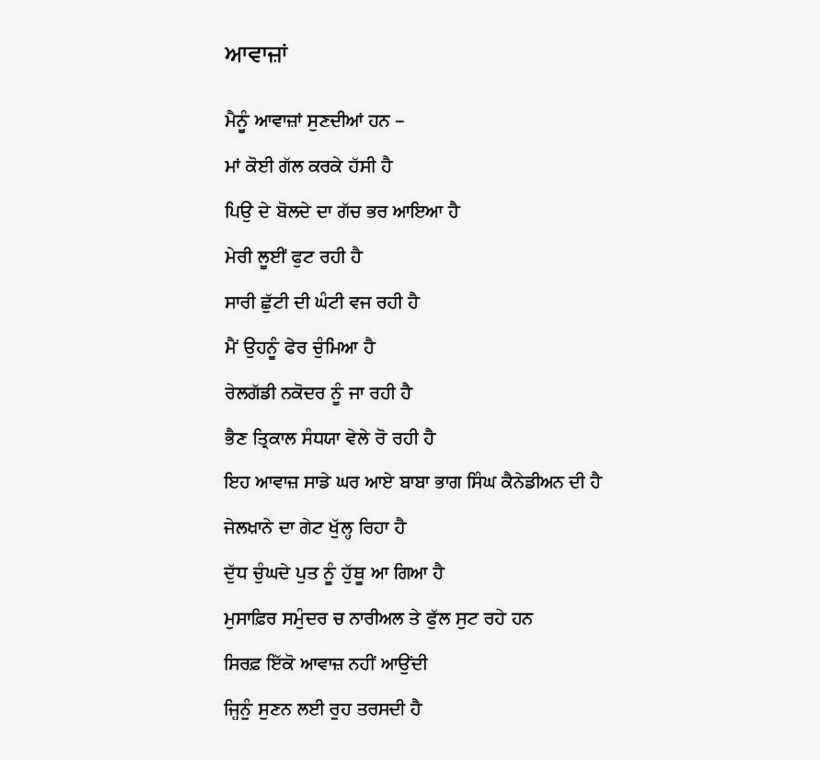 ਆਵਾਜ਼ਾਂ
ਮੈਨੂੰ ਆਵਾਜ਼ਾਂ ਸੁਣਦੀਆਂ ਹਨ –
ਮਾਂ ਕੋਈ ਗੱਲ ਕਰਕੇ ਹੱਸੀ ਹੈ
ਪਿਉ ਦੇ ਬੋਲਦੇ ਦਾ ਗੱਚ ਭਰ ਆਇਆ ਹੈ
ਮੇਰੀ ਲੂਈਂ ਫੁਟ ਰਹੀ ਹੈ
ਸਾਰੀ ਛੁੱਟੀ ਦੀ ਘੰਟੀ ਵਜ ਰਹੀ ਹੈ
ਮੈਂ ਉਹਨੂੰ ਫੇਰ ਚੁੰਮਿਆ ਹੈ
ਰੇਲਗੱਡੀ ਨਕੋਦਰ ਨੂੰ ਜਾ ਰਹੀ ਹੈ
ਭੈਣ ਤ੍ਰਿਕਾਲ ਸੰਧਯਾ ਵੇਲੇ ਰੋ ਰਹੀ ਹੈ
ਇਹ ਆਵਾਜ਼ ਸਾਡੇ ਘਰ ਆਏ ਬਾਬਾ ਭਾਗ ਸਿੰਘ ਕੈਨੇਡੀਅਨ ਦੀ ਹੈ
ਜੇਲਖ਼ਾਨੇ ਦਾ ਗੇਟ ਖੁੱਲ੍ਹ ਰਿਹਾ ਹੈ
ਦੁੱਧ ਚੁੰਘਦੇ ਪੁਤ ਨੂੰ ਹੁੱਥੂ ਆ ਗਿਆ ਹੈ
ਮੁਸਾਫ਼ਿਰ ਸਮੁੰਦਰ ਚ ਨਾਰੀਅਲ ਤੇ ਫੁੱਲ ਸੁਟ ਰਹੇ ਹਨ
ਸਿਰਫ਼ ਇੱਕੋ ਆਵਾਜ਼ ਨਹੀਂ ਆਉਂਦੀ
ਜ੍ਹਿਨੂੰ ਸੁਣਨ ਲਈ ਰੂਹ ਤਰਸਦੀ ਹੈ